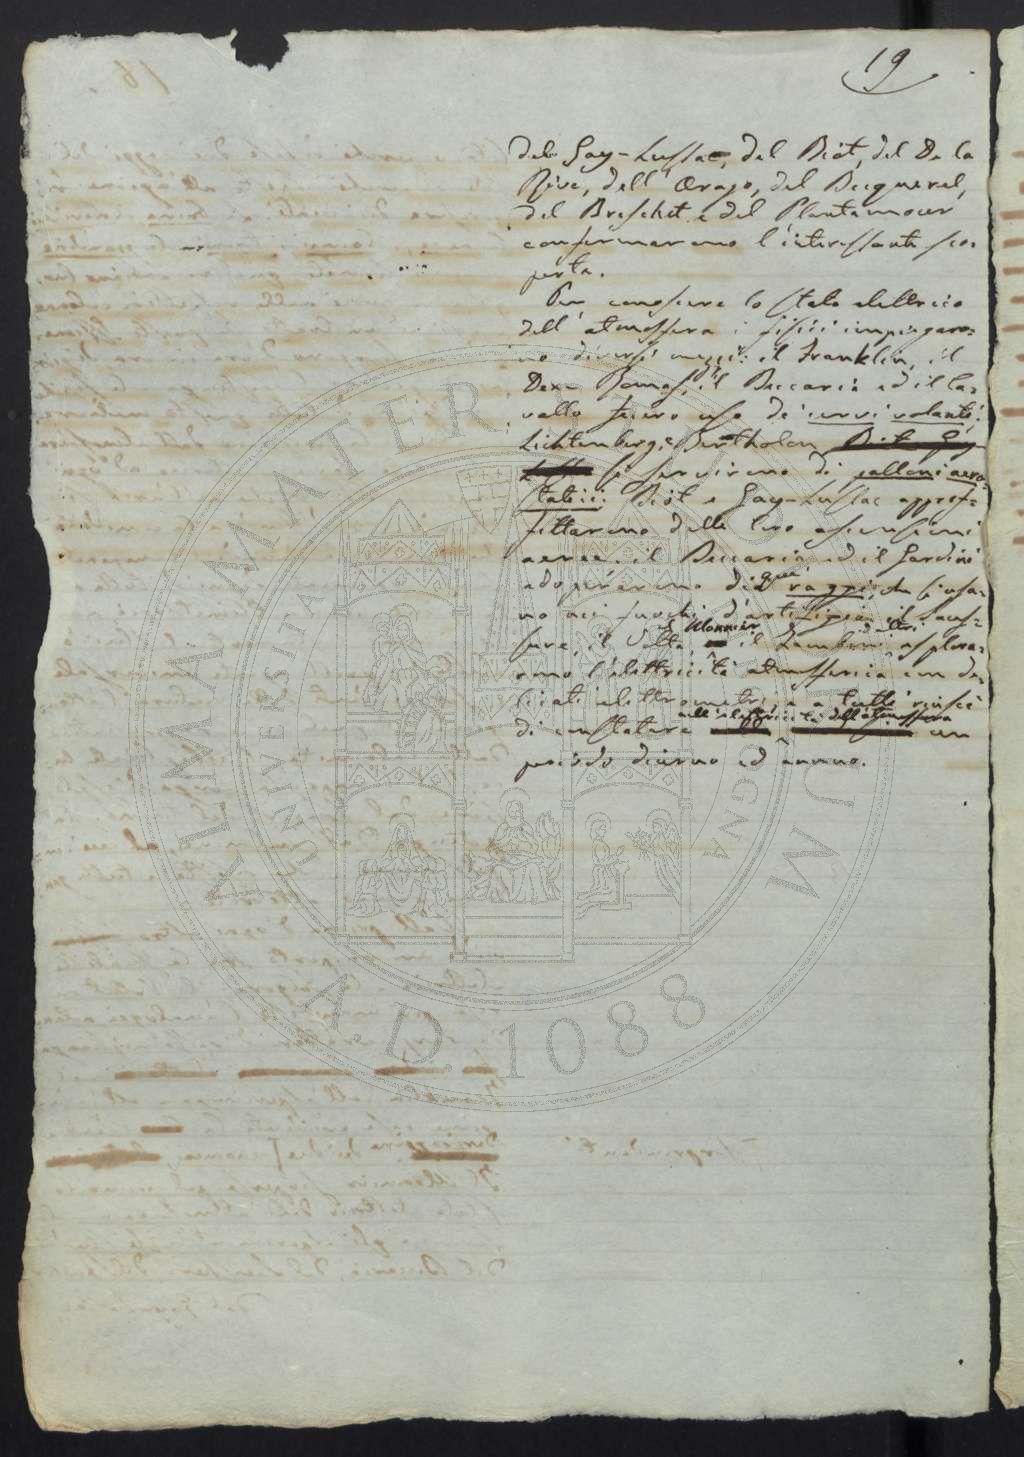 19
del Gay-Lussac, del Biot, del De la
Rive, dell' Arago, del Becquerel,
del Breschet e del Plantamour
confermarono l'interessante sco-
perta.
Per conoscere lo stato elettrico
dell' atmosfera i fisici impiegaro-
no diversi mezzi: il Franklin, il
De Romas, il Beccaria ed il Ca-
vallo fecero uso de' cervi volanti;
Lichtenberg e Bertholon
si servirono di palloni aero-
statici: Biot e Gay-Lussac approf-
fittarono delle loro ascensioni
aeree: il Beccaria ed il Gardini
adoperarono di que' razzi che s'usa-
no nei fuochi d'artifizio: il Saus-
sure, il Volta, il Monnier il Zamboni ed altri esplora-
rono l'elettricità atmosferica con de-
licati elettrometri, e a tutti riuscì
di constatare nell'elettricità dell'atmosfera un
periodo diurno ed annuo.
ALMA MATER STUDIORUM
UNIVERSITAS BONONIENSIS
A.D. 1088